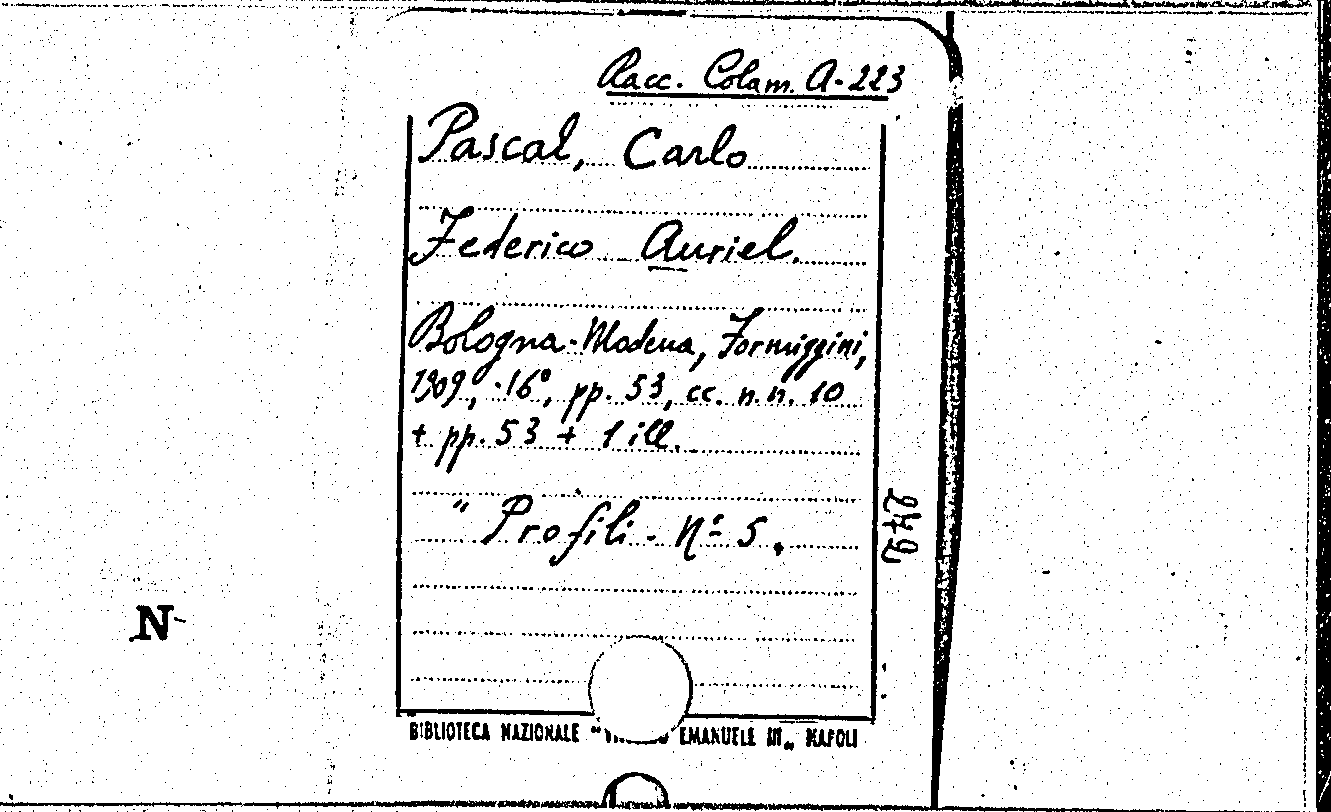 Racc. Colam. A-223
Pascal, Carlo
Federico Auriel.
Bologna-Modena, Formiggini,
1909, 16°, pp. 53, cc. n. n. 10
+ pp. 53 + 1 ill.
" Profili - Nº 5.
249
N
BIBLIOTECA NAZIONALE " EMANUELE III„ NAPOLI